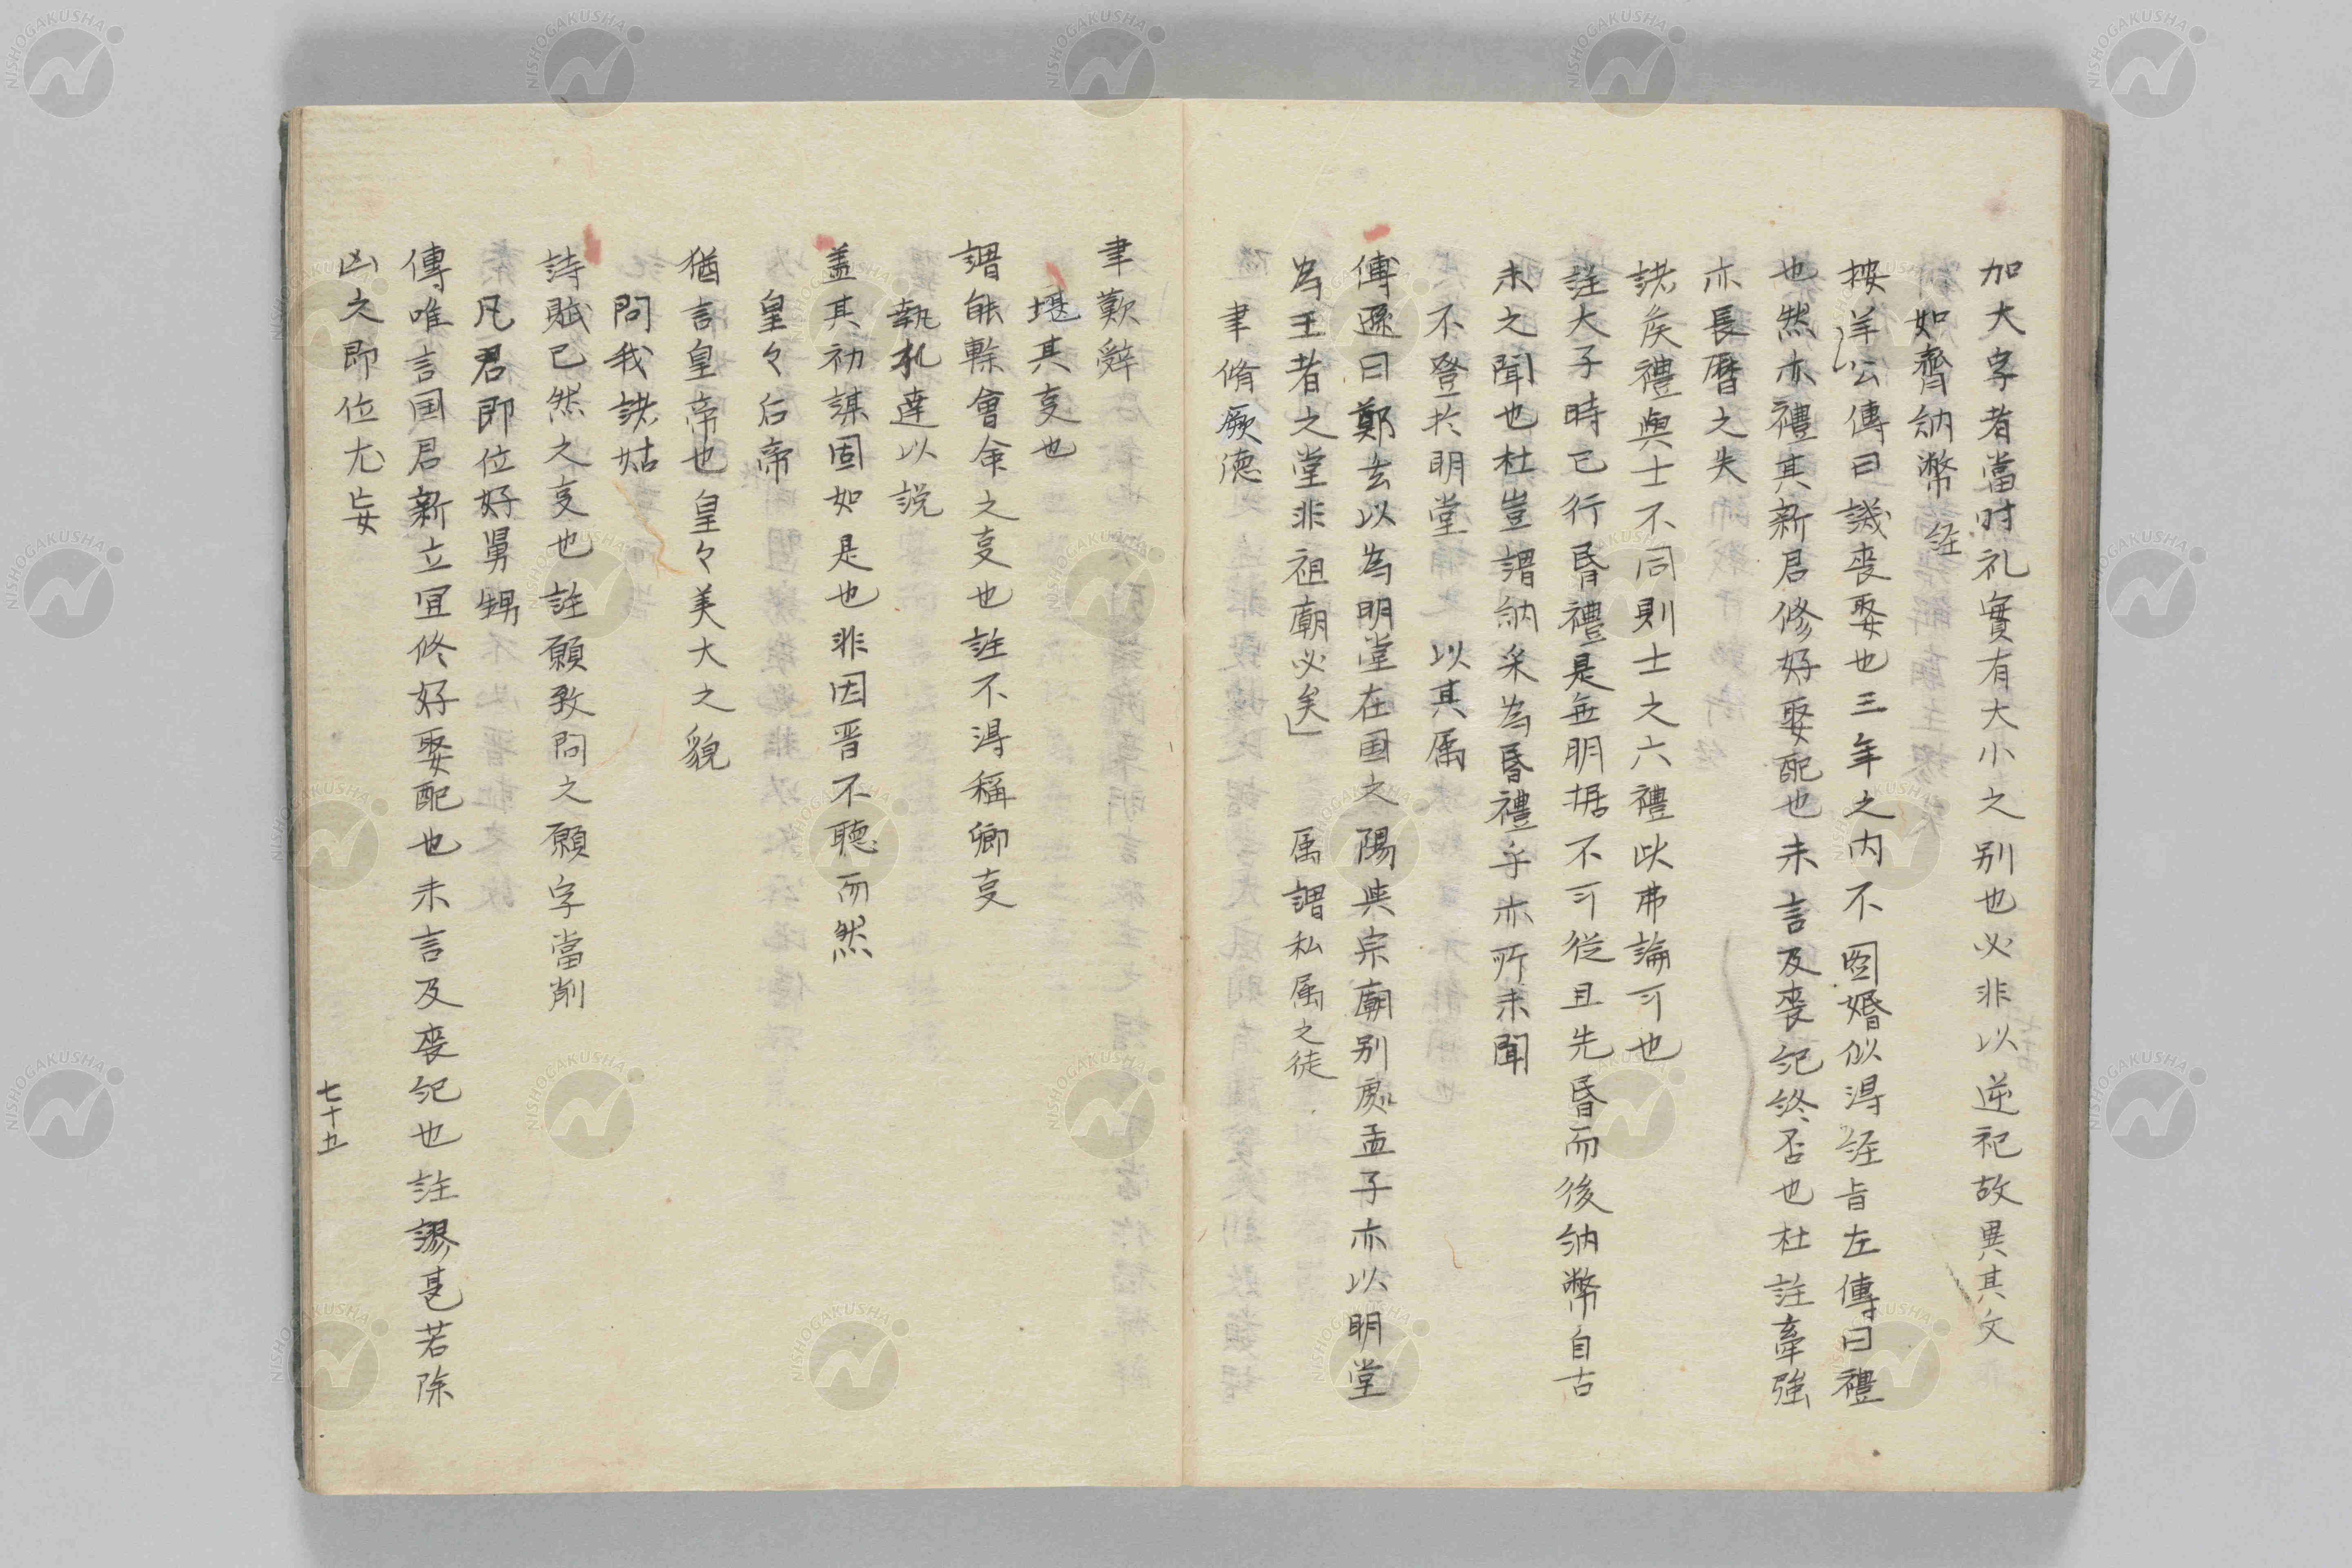 加大字者當时礼實有大小之別也必非以逆祀故異其文
如齊納幣 経
按羊公傳曰譏喪娶也三年之内不啚婚似淂経旨左傳曰禮
也然亦禮其新君修好娶配也未言及喪紀終否也杜註牽強
亦長曆之失
諸侯禮與士不同則士之六禮此弗論可也
註大子時已行昏禮是無明据不可従且先昏而後納幣自古
未之聞也杜豈謂納采為昏禮乎亦所未聞
不登於明堂 以其属
傅遜曰鄭玄以為明堂在国之陽與宗廟别處孟子亦以明堂
為王者之堂非祖廟必矣」 属謂私属之徒
聿脩厥徳
聿歎辞
堪其㕝也
謂能幹會伞之㕝也註不淂稱卿㕝
執札達以説
盖其初謀固如是也非因晋不聴而然
皇々后帝
猶言皇帝也皇々美大之貌
問我諸姑
詩賦已然之㕝也註願致問之願字當削
凡君即位好舅甥
傳唯言国君新立宜修好娶配也未言及喪紀也註謬甚若除
凶之即位尤妄
七十五
NISHOGAKUSHA